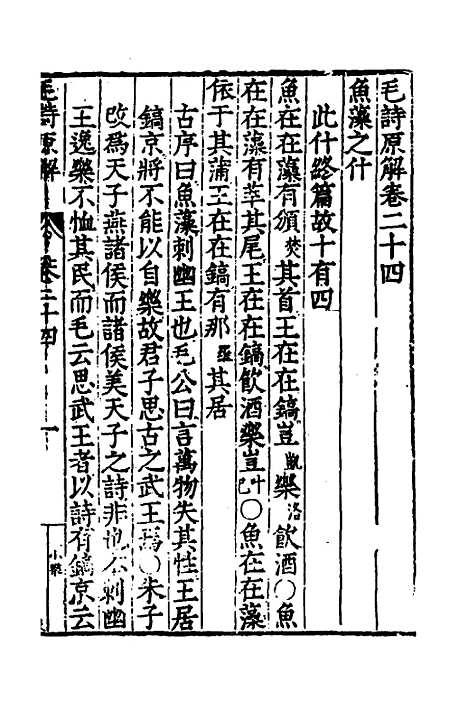 毛詩原解卷二十四
魚藻之什
此什終篇故十有四
魚在在藻有頒焚其首王在在鎬豈凱樂洛飲酒〇魚
在在藻有莘其尾王在在鎬飲酒樂豈〇魚在在藻
依于其蒲王在在鎬有那其居
古序曰魚藻刺幽王也毛公曰言萬物失其性王居
鎬京將不能以自樂故君子思古之武王焉〇朱子
改為天子燕諸侯而諸侯美天子之詩非也不刺幽
王逸樂不恤其民而毛云思武王者以詩有鎬京云
毛詩原解 卷二十四 一
小雅